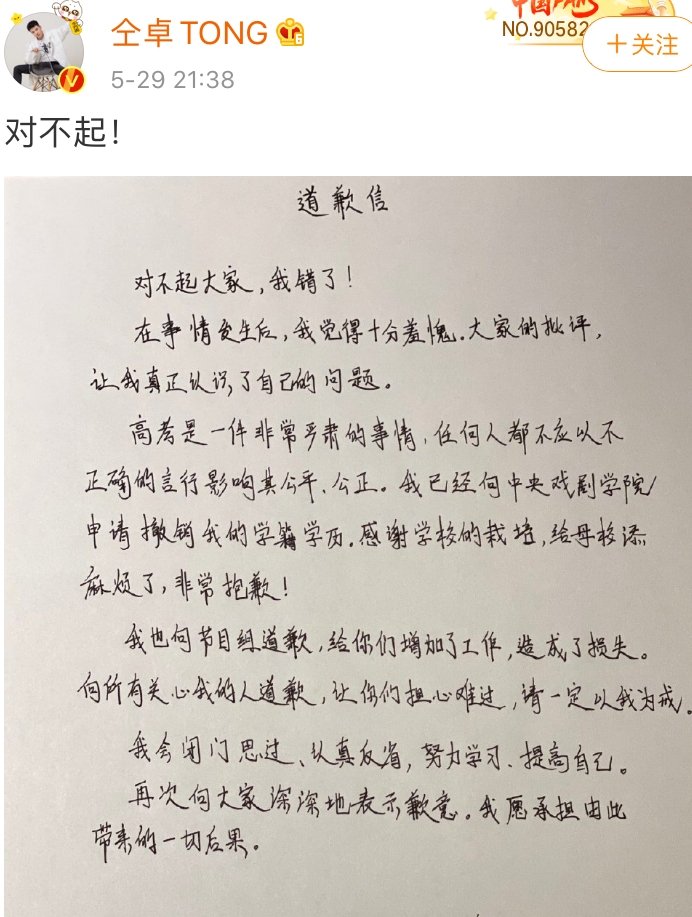 仝卓TONG
5-29 21:38
NO.90582
+关注
对不起!
道歉信
对不起大家,我错了!
在事情发生后,我觉得十分羞愧.大家的批评,
让我真正认识了自己的问题。
高考是一件非常严肃的事情,任何人都不应以不
正确的言行影响其公平、公正。我已经向中央戏剧学院
申请撤销我的学籍学历.感谢学校的栽培,给母校添
麻烦了,非常抱歉!
我也向节目组道歉,给你们增加了工作,造成了损失。
向所有关心我的人道歉,让你们担心难过,请一定以我为戒.
我会闭门思过、认真反省,努力学习、提高自己。
再次向大家深深地表示歉意。我愿承担由此
带来的一切后果。